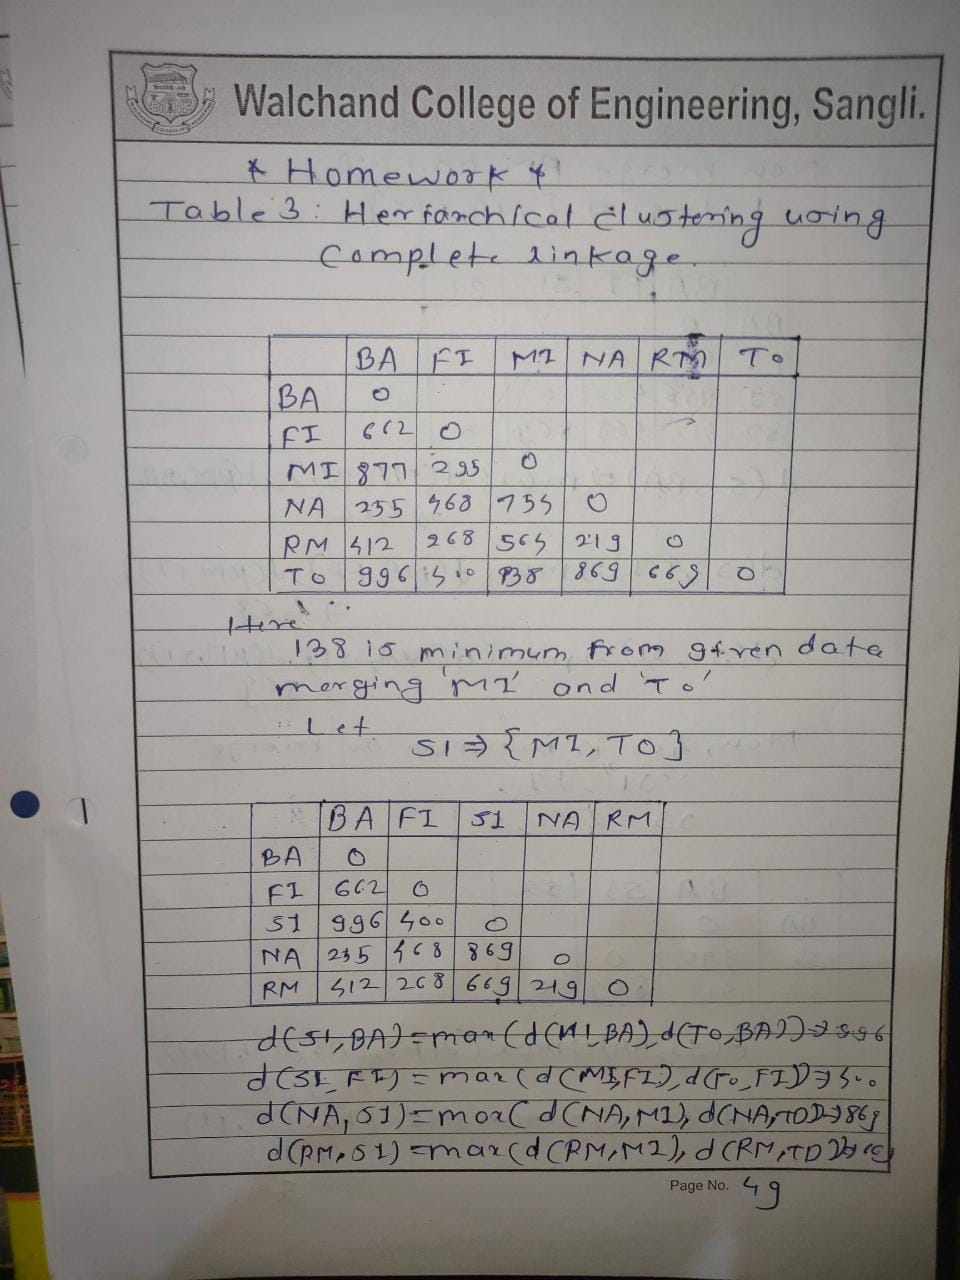 Walchand College of Engineering, Sangli.
* Homework *
Table 3: Herfarchical clustering using
Complete linkage.
BA FI MI NA RM TO
BA 0
FI 662 0
MI 877 295 0
NA 255 468 754 0
RM 412 268 564 219 0
TO 996 400 138 869 669 0
Here
138 is minimum from given data
merging 'MI' and 'To'
Let
S1 ⇒ {MI, TO}
BA FI S1 NA RM
BA 0
FI 662 0
S1 996 400 0
NA 255 468 869 0
RM 412 268 669 219 0
d(S1,BA)=max(d(MI,BA),d(TO,BA))⇒996
d(S1,FI)=max(d(MI,FI),d(To,FI))⇒400
d(NA,S1)=max(d(NA,MI),d(NA,TO))⇒869
d(RM,S1)=max(d(RM,MI),d(RM,TO))⇒669
Page No. 49